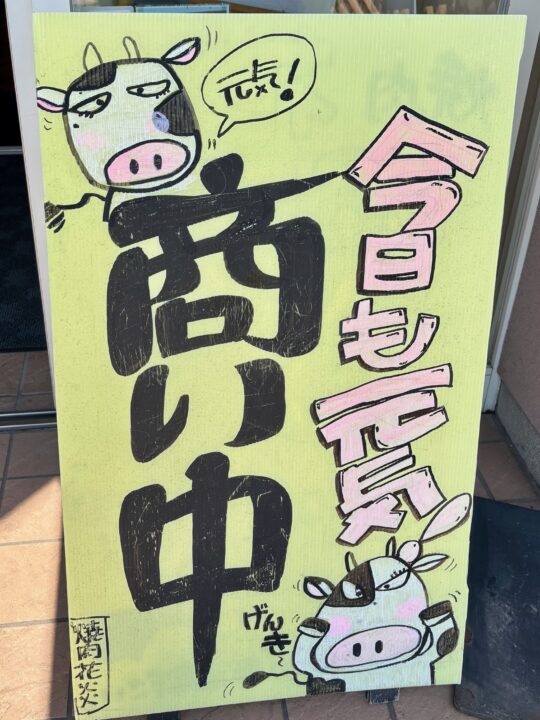 今日も元気!
商い中
元気!
げんき
焼肉花炎